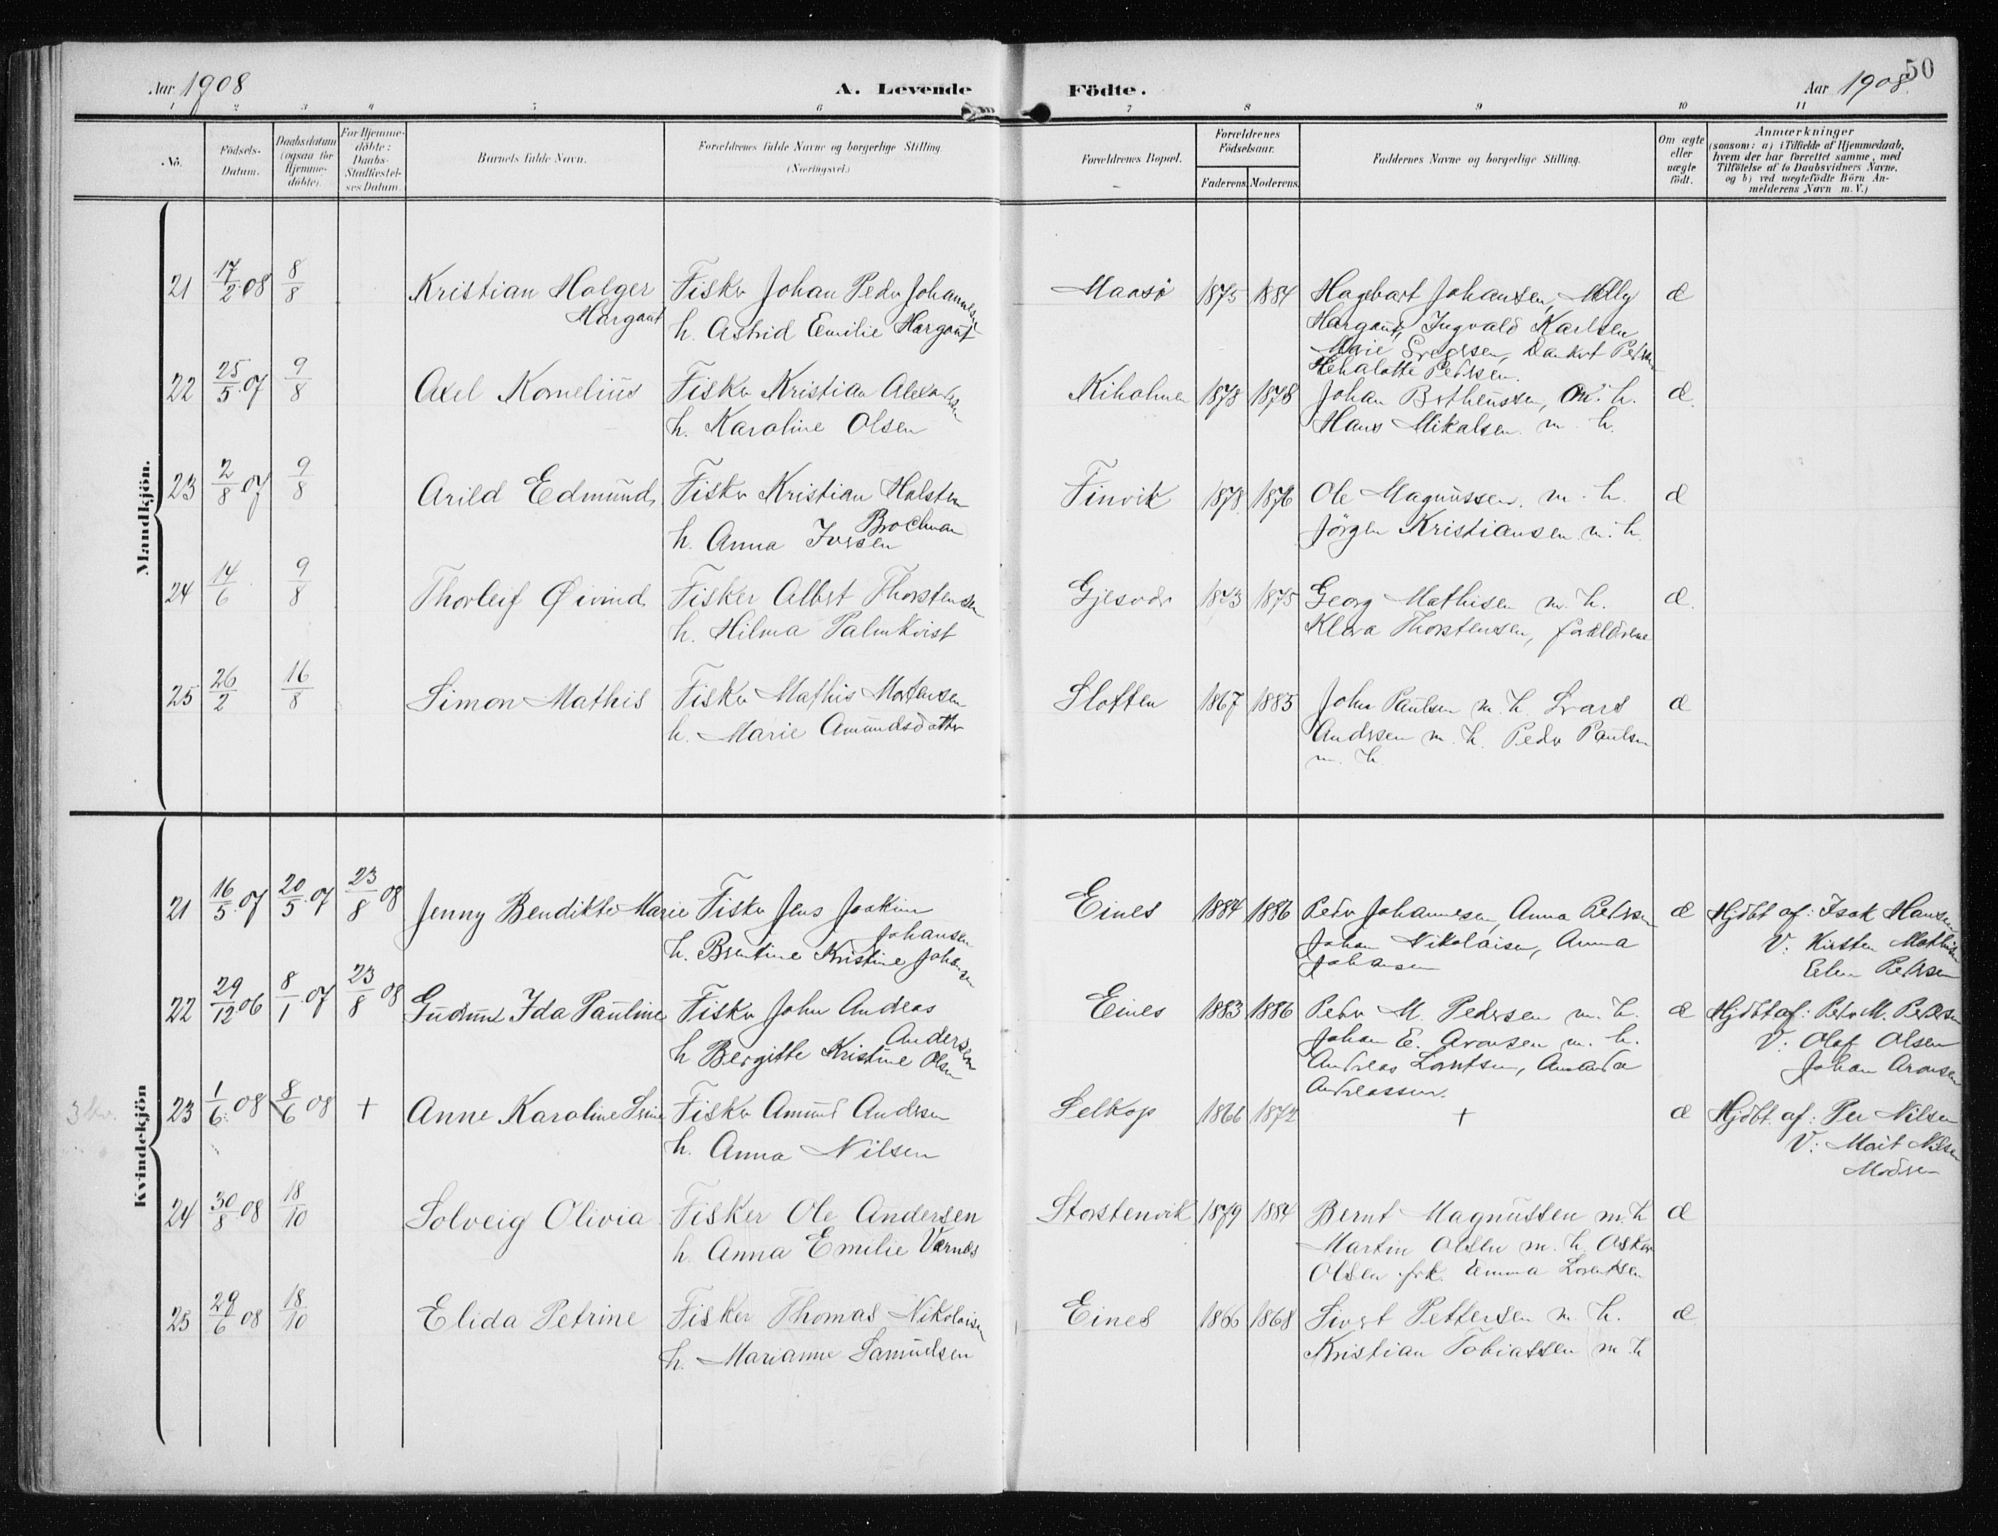 50
Aar 1908 A. Levende Födte. Aar 1908.
1 2 3 4 5 6 7 8 9 10 11
No. Födsels-Datum. Daabsdatum (ogsaa for Hjemme-döbte). For Hjemme-döbte: Daabs-Stadfæstel-ses Datum. Barnets fulde Navn. Forældrenes fulde Navne og borgerlige Stilling. (Næringsvei.) Forældrenes Bopæl. Forældrenes Födselsaar. Faderens. Moderens. Faddernes Navne og borgerlige Stilling. Om ægte eller uægte födt. Anmærkninger (saasom: a) i Tilfælde af Hjemmedaab, hvem der har forrettet samme, med Tilföielse af to Daabsvidners Navne, og b) ved uægtefödte Börn An-melderens Navn m. V.)
Mandkjön.
21 17/2 08 8/8 Kristian Holger Fisker Johan Peder Johannesen Maasö 1875 1884 Hagbart Johansen, Molly æ
Hargaut h. Astrid Emilie Hargaut Hargaut, Ingvald Karlsen
Marie Dankert Pedersen
22 25/5 07 9/8 Axel Kornelius Fisker Kristian Kiholmen 1878 1878 Pedersen. æ
h. Karoline Olsen Johan m. h.
Hans Mikalsen. m. h.
23 2/8 07 9/8 Arild Edmund Fisker Kristian Holster Finvik 1878 1876 Ole Magnussen. m. h. æ
Brochman Jörgen Kristiansen m. h.
h. Anna Iversen
24 14/6 9/8 Thorleif Øivind Fisker Albert Thorstensen Gjesvær 1873 1875 Georg Mathisen m. h. æ
h. Hilma Palmkvist Klara Thorstensen, forældrene
25 26/2 16/8 Simon Mathis Fisker Mathis Mortensen Slotten 1867 1883 John Paulsen m. h.
h. Marie Amundsdatter Andersen m. h. Peder Paulsen æ
m. h.
Kvindekjön
21 16/5 07 20/5 07 23/8 08 Jenny Bendikte Marie Fisker Jens Joakim Eines 1884 1886 Peder Johannesen, Anna Pedersen æ Hjdbt af: Isak Hansen
Johansen Johan Nikolaisen, Anna V: Kirsten Mathisen
h. Berntine Kristine Johansen Johansen Pedersen
22 29/12 06 8/1 07 23/8 08 Gudrun Ida Pauline Fisker John Andreas Eines 1883 1886 Peder M. Pedersen m. h. æ Hjdbt af: Peder M. Pedersen
Andersen Johan E. Aronsen m. h. V: Olaf Olsen
h. Bergitte Kristine Olsen Andreas Lorntsen, Amanda Johan Aronsen
Andreassen.
23 1/6 08 8/6 08 + Anne Karoline Fisker Amund Andersen Selkop 1866 1872 + æ Hjdbt. af: Per Nilsen
h. Anna Nilsen V: Marit Nilsen
24 30/8 08 18/10 Solveig Olivia Fisker Ole Andersen Storstenvik 1879 1884 Bernt Magnussen m. h æ
h. Anna Emilie Værnes Martin Olsen m. h. Oskar
Olsen frk. Emma Lorentsen
25 29/6 08 18/10 Elida Petrine Fisker Thomas Nikolaisen Eines 1866 1868 Sivert Pettersen m. h. æ
h. Marianne Samuelsen Kristian Tobiassen m. h